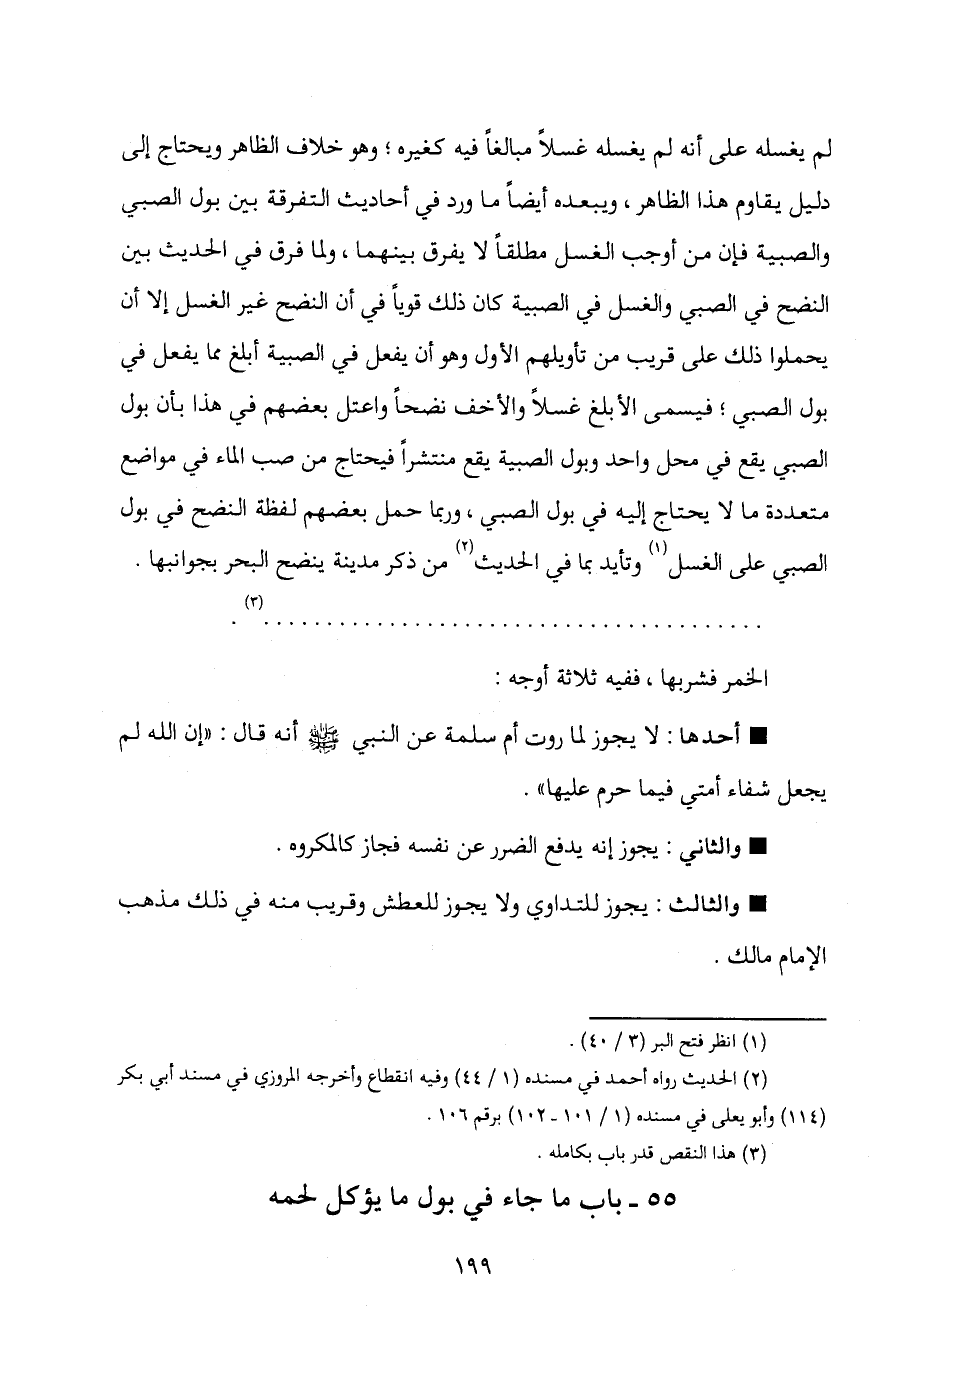 لم يغسله على أنه لم يغسله غسلاً مبالغاً فيه كغيره ؛ وهو خلاف الظاهر ويحتاج إلى
دليل يقاوم هذا الظاهر ، ويبعده أيضاً ما ورد في أحاديث التفرقة بين بول الصبي
والصبية فإن من أوجب الغسل مطلقاً لا يفرق بينهما ، ولما فرق في الحديث بين
النضح في الصبي والغسل في الصبية كان ذلك قوياً في أن النضح غير الغسل إلا أن
يحملوا ذلك على قريب من تأويلهم الأول وهو أن يفعل في الصبية أبلغ مما يفعل في
بول الصبي ؛ فيسمى الأبلغ غسلاً والأخف نضحاً واعتل بعضهم في هذا بأن بول
الصبي يقع في محل واحد وبول الصبية يقع منتشراً فيحتاج من صب الماء في مواضع
متعددة ما لا يحتاج إليه في بول الصبي ، وربما حمل بعضهم لفظة النضح في بول
الصبي على الغسل(١) وتأيد بما في الحديث(٢) من ذكر مدينة ينضح البحر بجوانبها .
. . . . . . . . . . . . . . . . . . . . . . . . . . . . . . . . . . . . . . . .(٣) .
الخمر فشربها ، ففيه ثلاثة أوجه :
■ أحدها : لا يجوز لما روت أم سلمة عن النبي ﷺ أنه قال : «إن الله لم
يجعل شفاء أمتي فيما حرم عليها» .
■ والثاني : يجوز إنه يدفع الضرر عن نفسه فجاز كالمكروه .
■ والثالث : يجوز للتداوي ولا يجوز للعطش وقريب منه في ذلك مذهب
الإمام مالك .
(١) انظر فتح البر (٣ / ٤٠) .
(٢) الحديث رواه أحمد في مسنده (١ / ٤٤) وفيه انقطاع وأخرجه المروزي في مسند أبي بكر
(١١٤) وأبو يعلى في مسنده (١ / ١٠١ - ١٠٢) برقم ١٠٦ .
(٣) هذا النقص قدر باب بكامله .
٥٥ - باب ما جاء في بول ما يؤكل لحمه
١٩٩